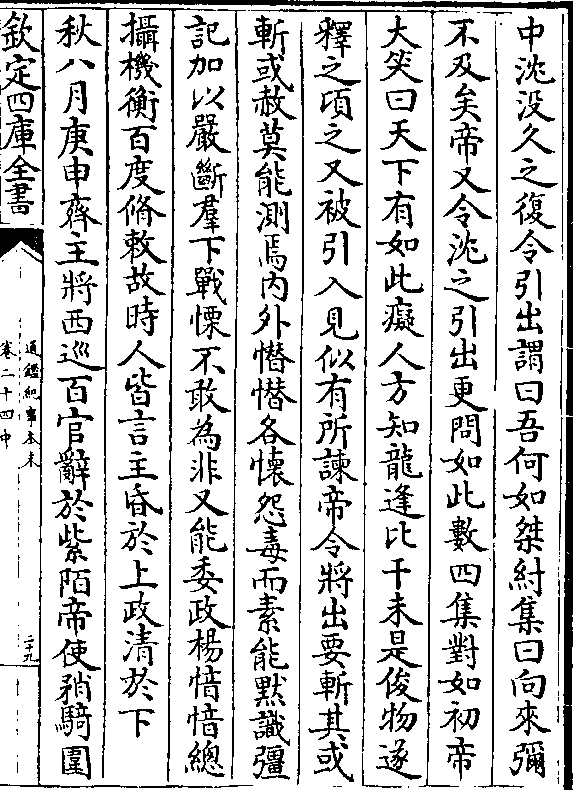 中沈没久之復令引出謂曰吾何如桀紂集曰向來彌
不及矣帝又令沈之引出更問如此數四集對如初帝
大笑曰天下有如此癡人方知龍逢比干未是俊物遂
釋之頃之又被引入見似有所諫帝令將出要斬其或
斬或赦莫能測焉内外憯憯各懷怨毒而素能黙識彊
記加以嚴斷羣下戰慄不敢為非又能委政楊愔愔總
攝機衡百度脩敕故時人皆言主昏於上政清於下
秋八月庚申齊主將西巡百官辭於紫陌帝使矟騎圍
欽定四庫全書
通鑑紀事本末
卷二十四中
二十九